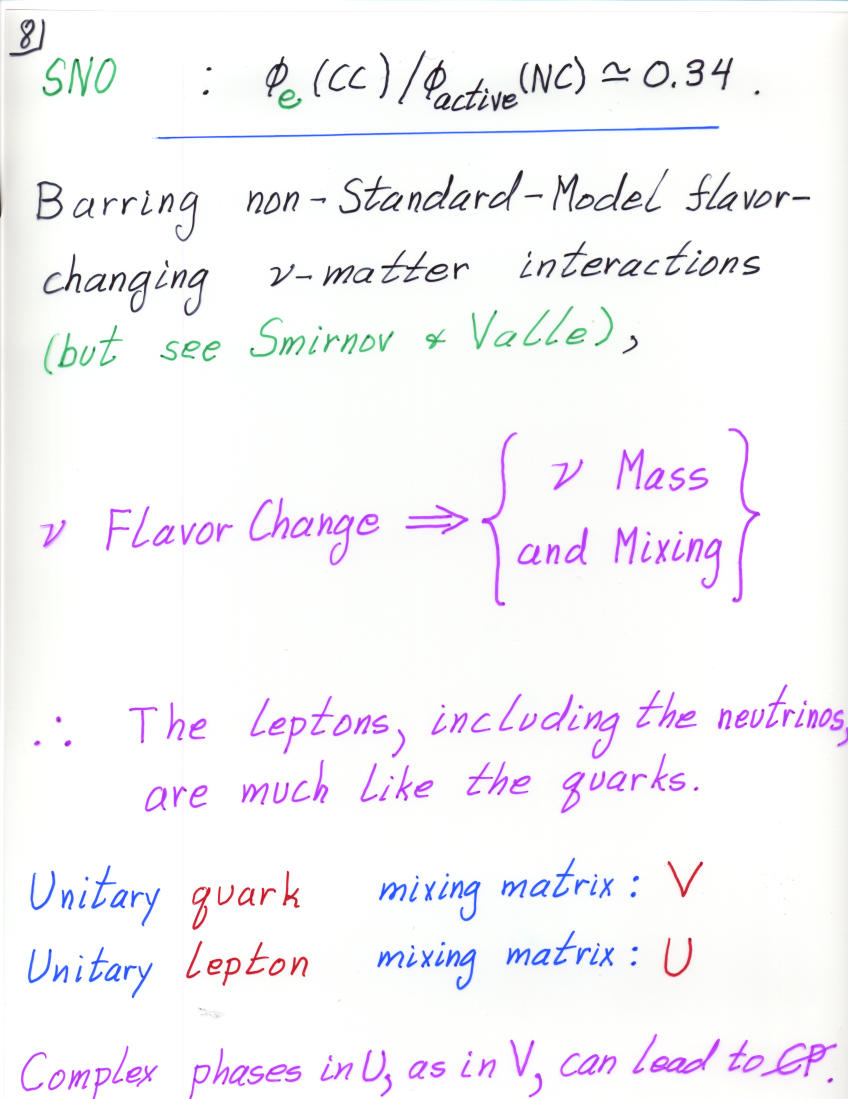 8)
SNO : ϕe (CC) / ϕactive (NC) ≃ 0.34 .
Barring non-Standard-Model flavor-
changing ν-matter interactions
(but see Smirnov & Valle),
ν Flavor Change ⇒ { ν Mass
and Mixing }
∴ The leptons, including the neutrinos,
are much like the quarks.
Unitary quark mixing matrix : V
Unitary lepton mixing matrix : U
Complex phases in U, as in V, can lead to C̸P̸.